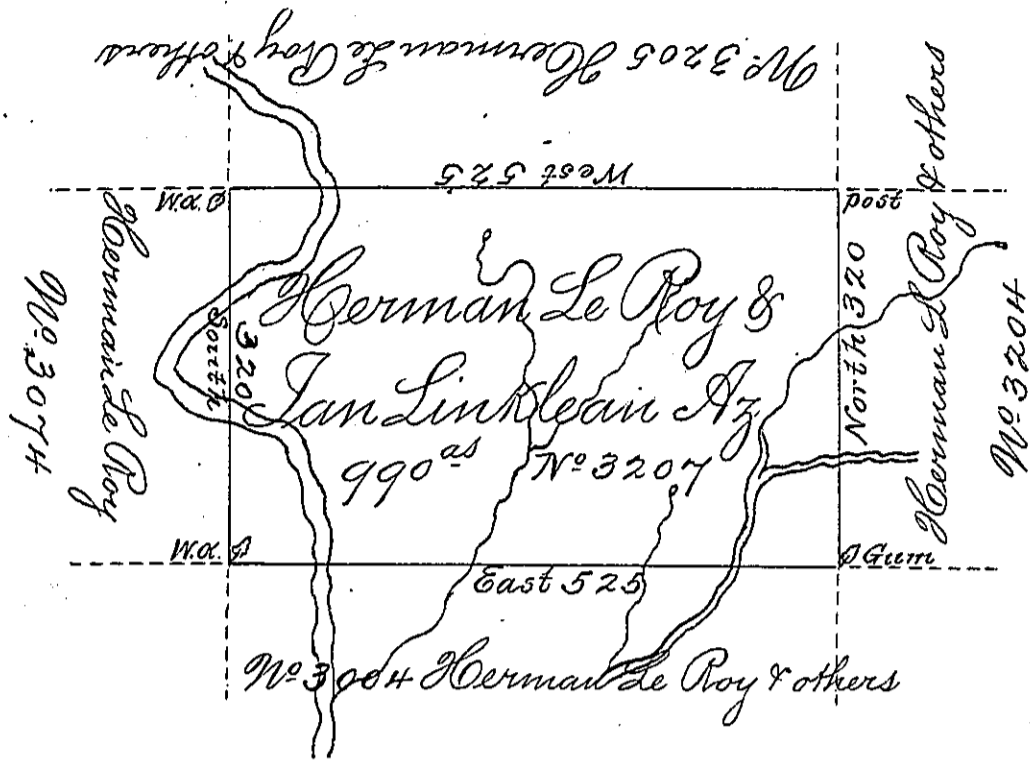 No. 3205 Herman Le Roy & others
West 525
W.O.
post
Herman Le Roy
No. 3074
South
320
Herman Le Roy &
Jan Linklean Az
990 as No 3207
North 320
Herman Le Roy & others
No 3204
W.O.
Gum
East 525
No 3004 Herman Le Roy & others